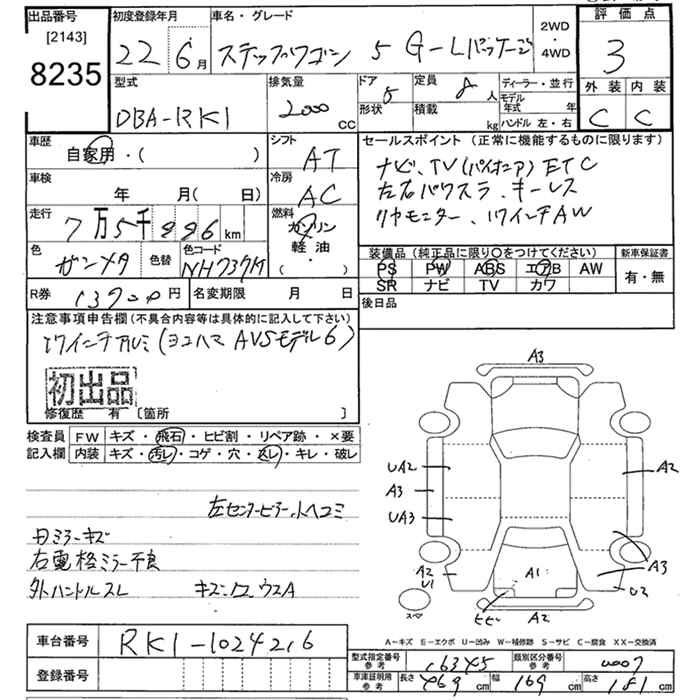 出品番号
[2143]
8235
初度登録年月
22年 6月
車名・グレード
ステップワゴン 5 G-Lパッケージ
2WD
・
4WD
評価点
3
外装 内装
C C
型式
DBA-RK1
排気量
2000 cc
ドア 5
形状
定員 8 人
積載 kg
ディーラー・並行
モデル年式 年
ハンドル 左・右
車歴
自家用・( )
シフト
AT
車検
年 月( 日)
冷房
AC
走行
7万5千886km
燃料
ガソリン
軽油
・( )
色
ガンメタ
色替
色コード
NH737M
R券 13700円
名変期限 月 日
セールスポイント(正常に機能するものに限ります)
ナビ、TV(パイオニア) ETC
左右パワスラ、キーレス
リヤモニター、17インチAW
装備品(純正品に限り○をつけてください)
PS PW ABS エアB AW
SR ナビ TV カワ
新車保証書
有・無
後日品
注意事項申告欄(不具合内容等は具体的に記入して下さい)
17インチアルミ(ヨコハマ AVSモデル6)
初出品
修復歴 有 [箇所 ]
検査員記入欄
FW キズ・飛石・ヒビ割・リペア跡・×要
内装 キズ・汚レ・コゲ・穴・スレ・キレ・破レ
左センターピラー小ヘコミ
右電格ミラー不良
外ハンドルスレ
A3
UA2
A2
A3
UA3
A2
U1
A1
A3
U2
ヒビ
A2
スペア
A−キズ E−エクボ U−凹み W−補修跡 S−サビ C−腐食 XX−交換済
車台番号
RK1-1024216
登録番号
型式指定番号参考 16345
類別区分番号参考 0007
車庫証明用参考 長さ 469 cm 幅 169 cm 高さ 181 cm